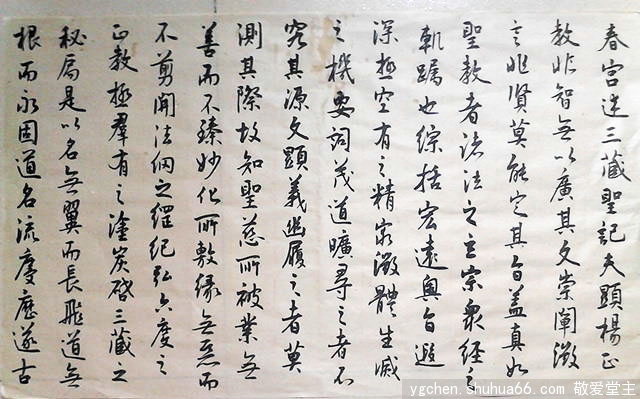 春宮述三藏聖記夫顯楊正
教非智無以廣其文崇闡微
言非賢莫能定其旨蓋真如
聖教者諸法之玄宗衆經之
軌躅也綜括宏遠奧旨遐
深極空有之精微體生滅
之機要詞茂道曠尋之者不
究其源文顯義幽履之者莫
測其際故知聖慈所被業無
善而不臻妙化所敷緣無惡而
不剪開法網之綱紀弘六度之
正教拯羣有之塗炭啓三藏之
秘扃是以名無翼而長飛道無
根而永固道名流慶歷遂古
ygchen.shuhua66.com 敬爱堂主